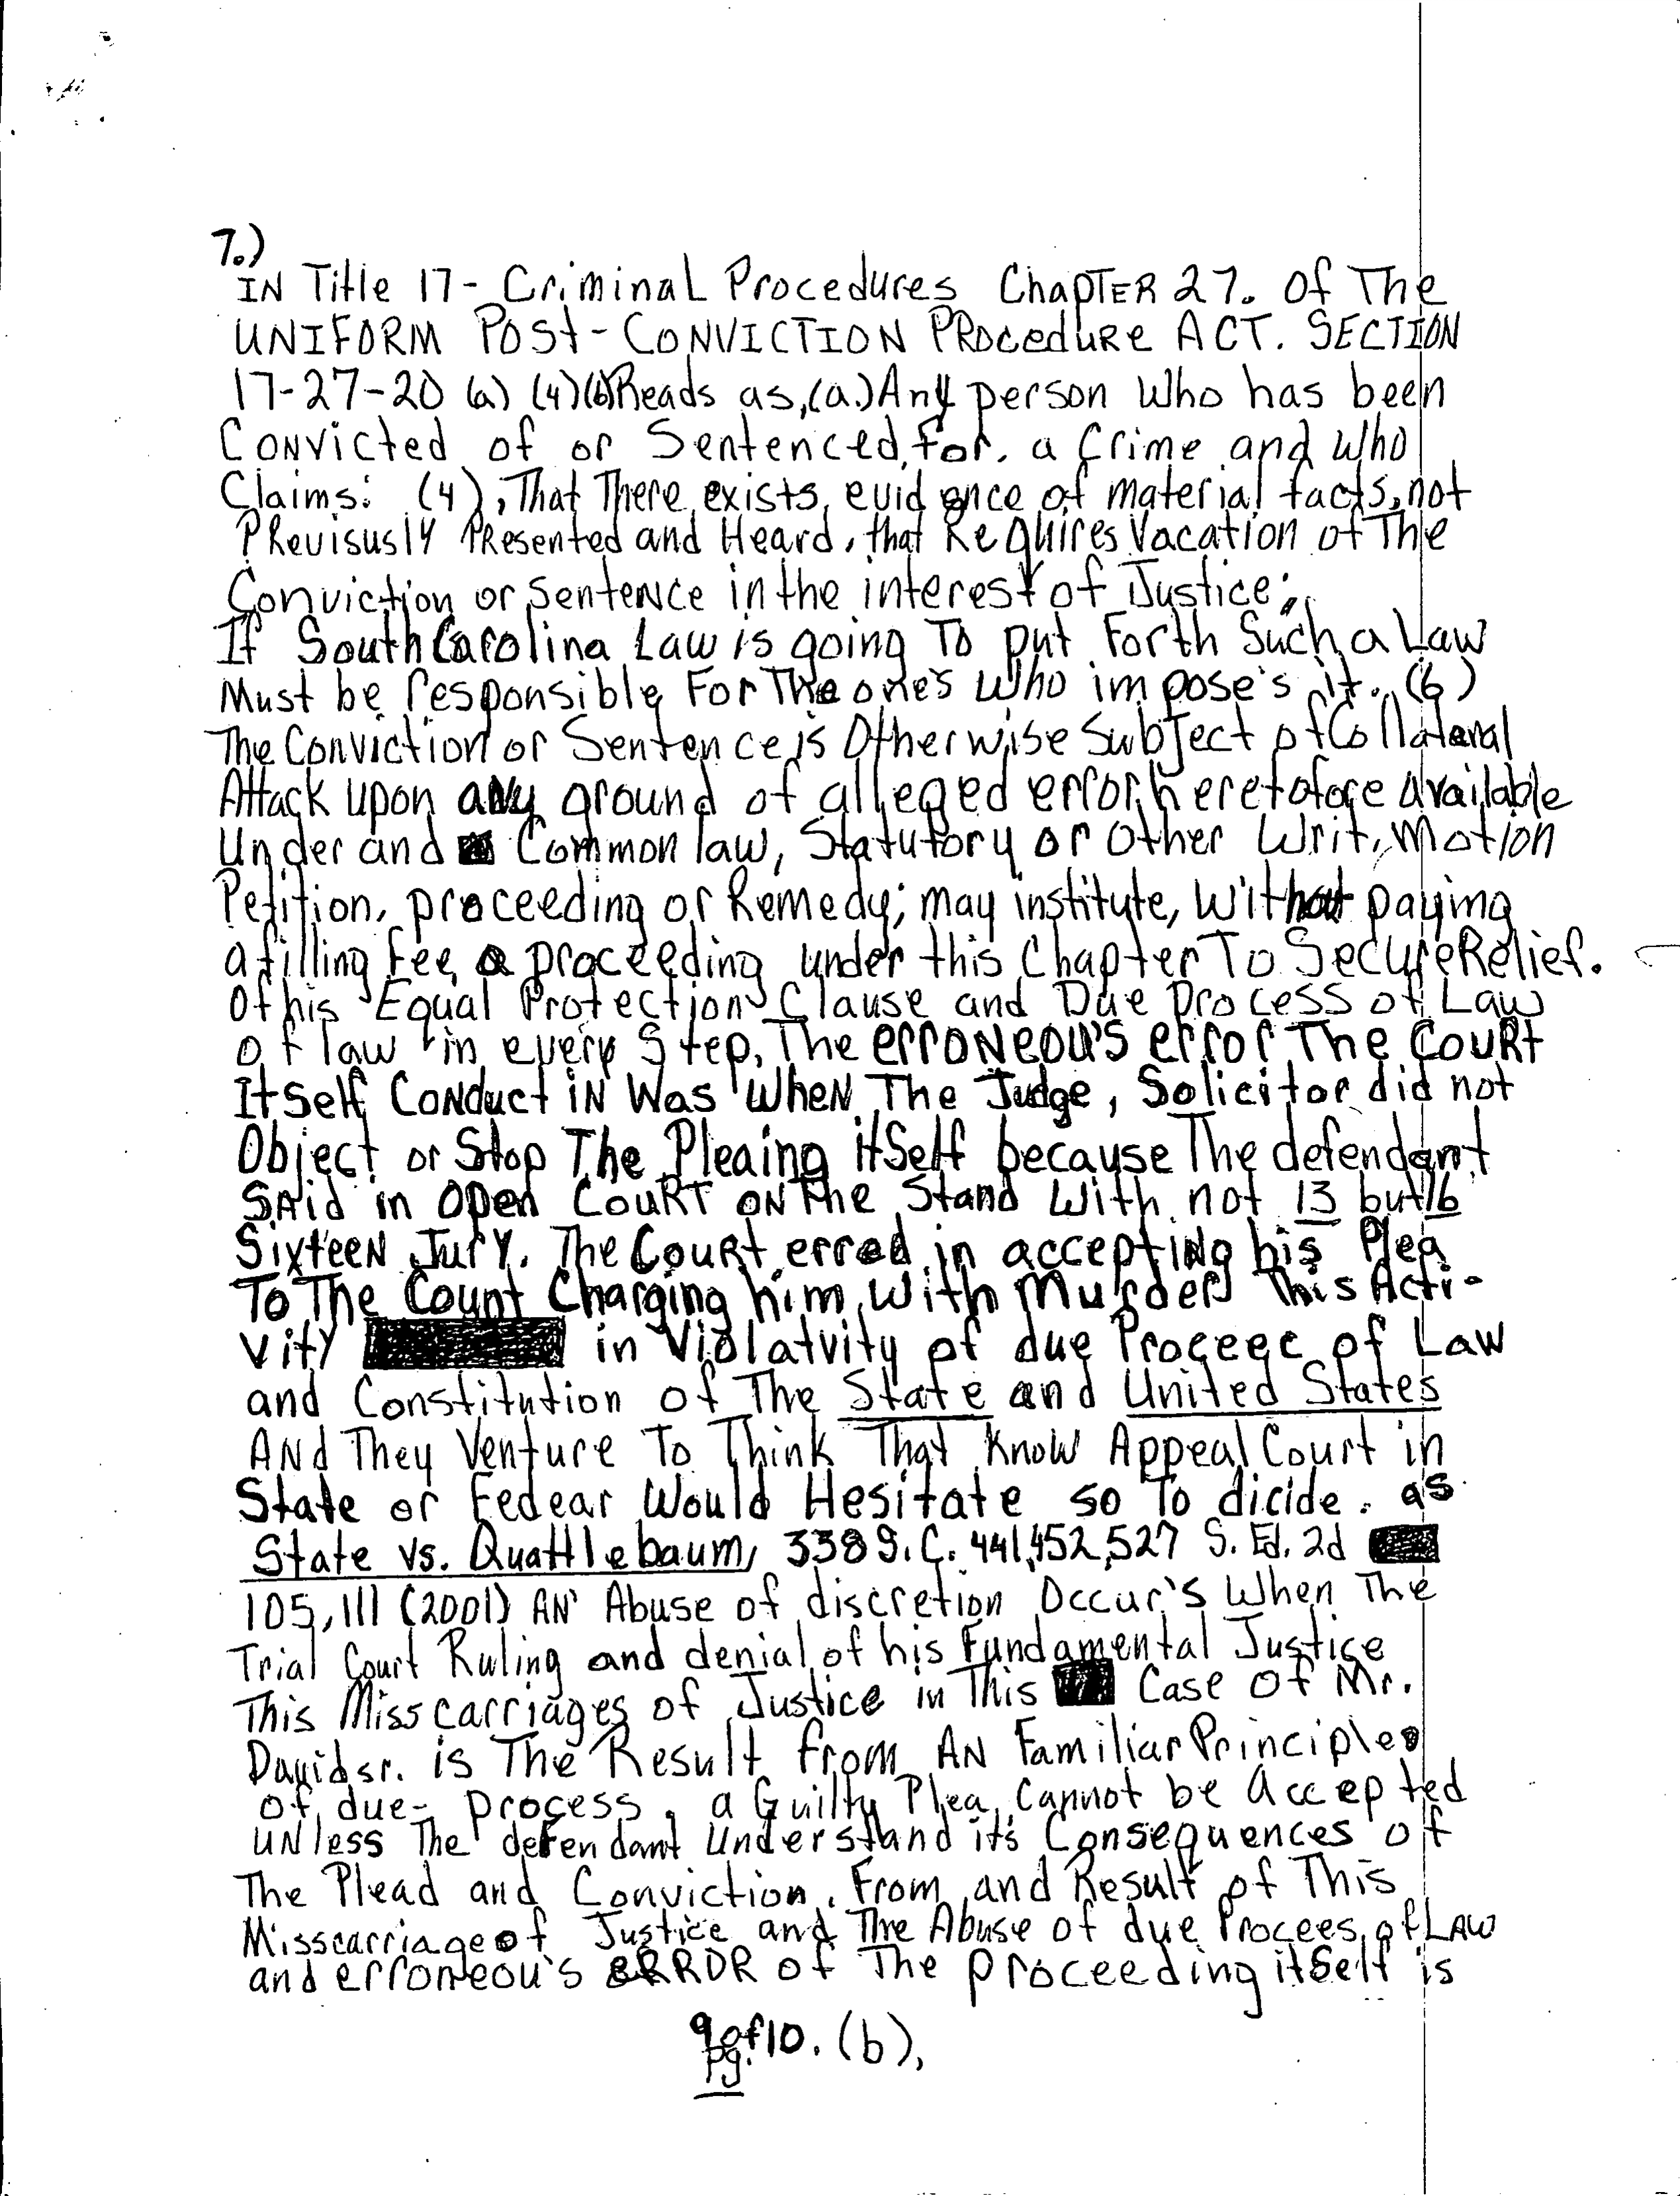 7.)
IN Title 17- Criminal Procedures Chapter 27. Of The
UNIFORM POSt-CONVICTION PRocedure ACT. SECTION
17-27-20 (a) (4)(6)Reads as,(a.)Any person Who has been
Convicted of or Sentenced, for. a Crime and Who
Claims: (4), That There exists, evidence of material facts, not
PRevisusly PResented and Heard, that Requires Vacation of The
Conviction or Sentence in the interest of Justice;
If South Carolina Law is going To put Forth Such a Law
Must be responsible For The one's Who impose's it. (6)
The Conviction or Sentence is Otherwise Subject of Collateral
Attack upon any ground of alleged error, heretofore available
Under and Common law, Statutory or Other Writ, Motion
Petition, proceeding or Remedy; may institute, Without paying
a filling Fee, a proceeding under this Chapter To Secure Relief.
Of his Equal Protection Clause and Due Process of Law
of law in every Step, The erroneou's error The Court
Itself Conduct in Was When The Judge, Solicitor did not
Object or Stop The Pleaing itself because The defendant
SAid in Open Court on The Stand With not 13 but 16
Sixteen Jury. The Court erred in accepting his Plea
To The Count Charging him With Murder This Acti-
vity in Violatvity of due Proceec of Law
and Constitution of The State and United States
AND They Venture To Think That Know Appeal Court in
State or Fedear Would Hesitate so To dicide. as
State vs. Quattlebaum, 338 S.C. 441,452,527 S. Ed. 2d
105,111 (2001) AN' Abuse of discretion Occur's When The
Trial Court Ruling and denial of his Fundamental Justice
This Misscarriages of Justice in This Case Of Mr.
David sr. is The Result from AN Familiar Principles
of due- process. a Guilty Plea, Cannot be Accepted
UNless The defendant Understand it's Consequences of
The Plead and Conviction. From and Result of This
Misscarriage of Justice and The Abuse of due Procees of LAW
and erroneou's ERROR of The proceeding itself is
9 of 10. (b),
pg.